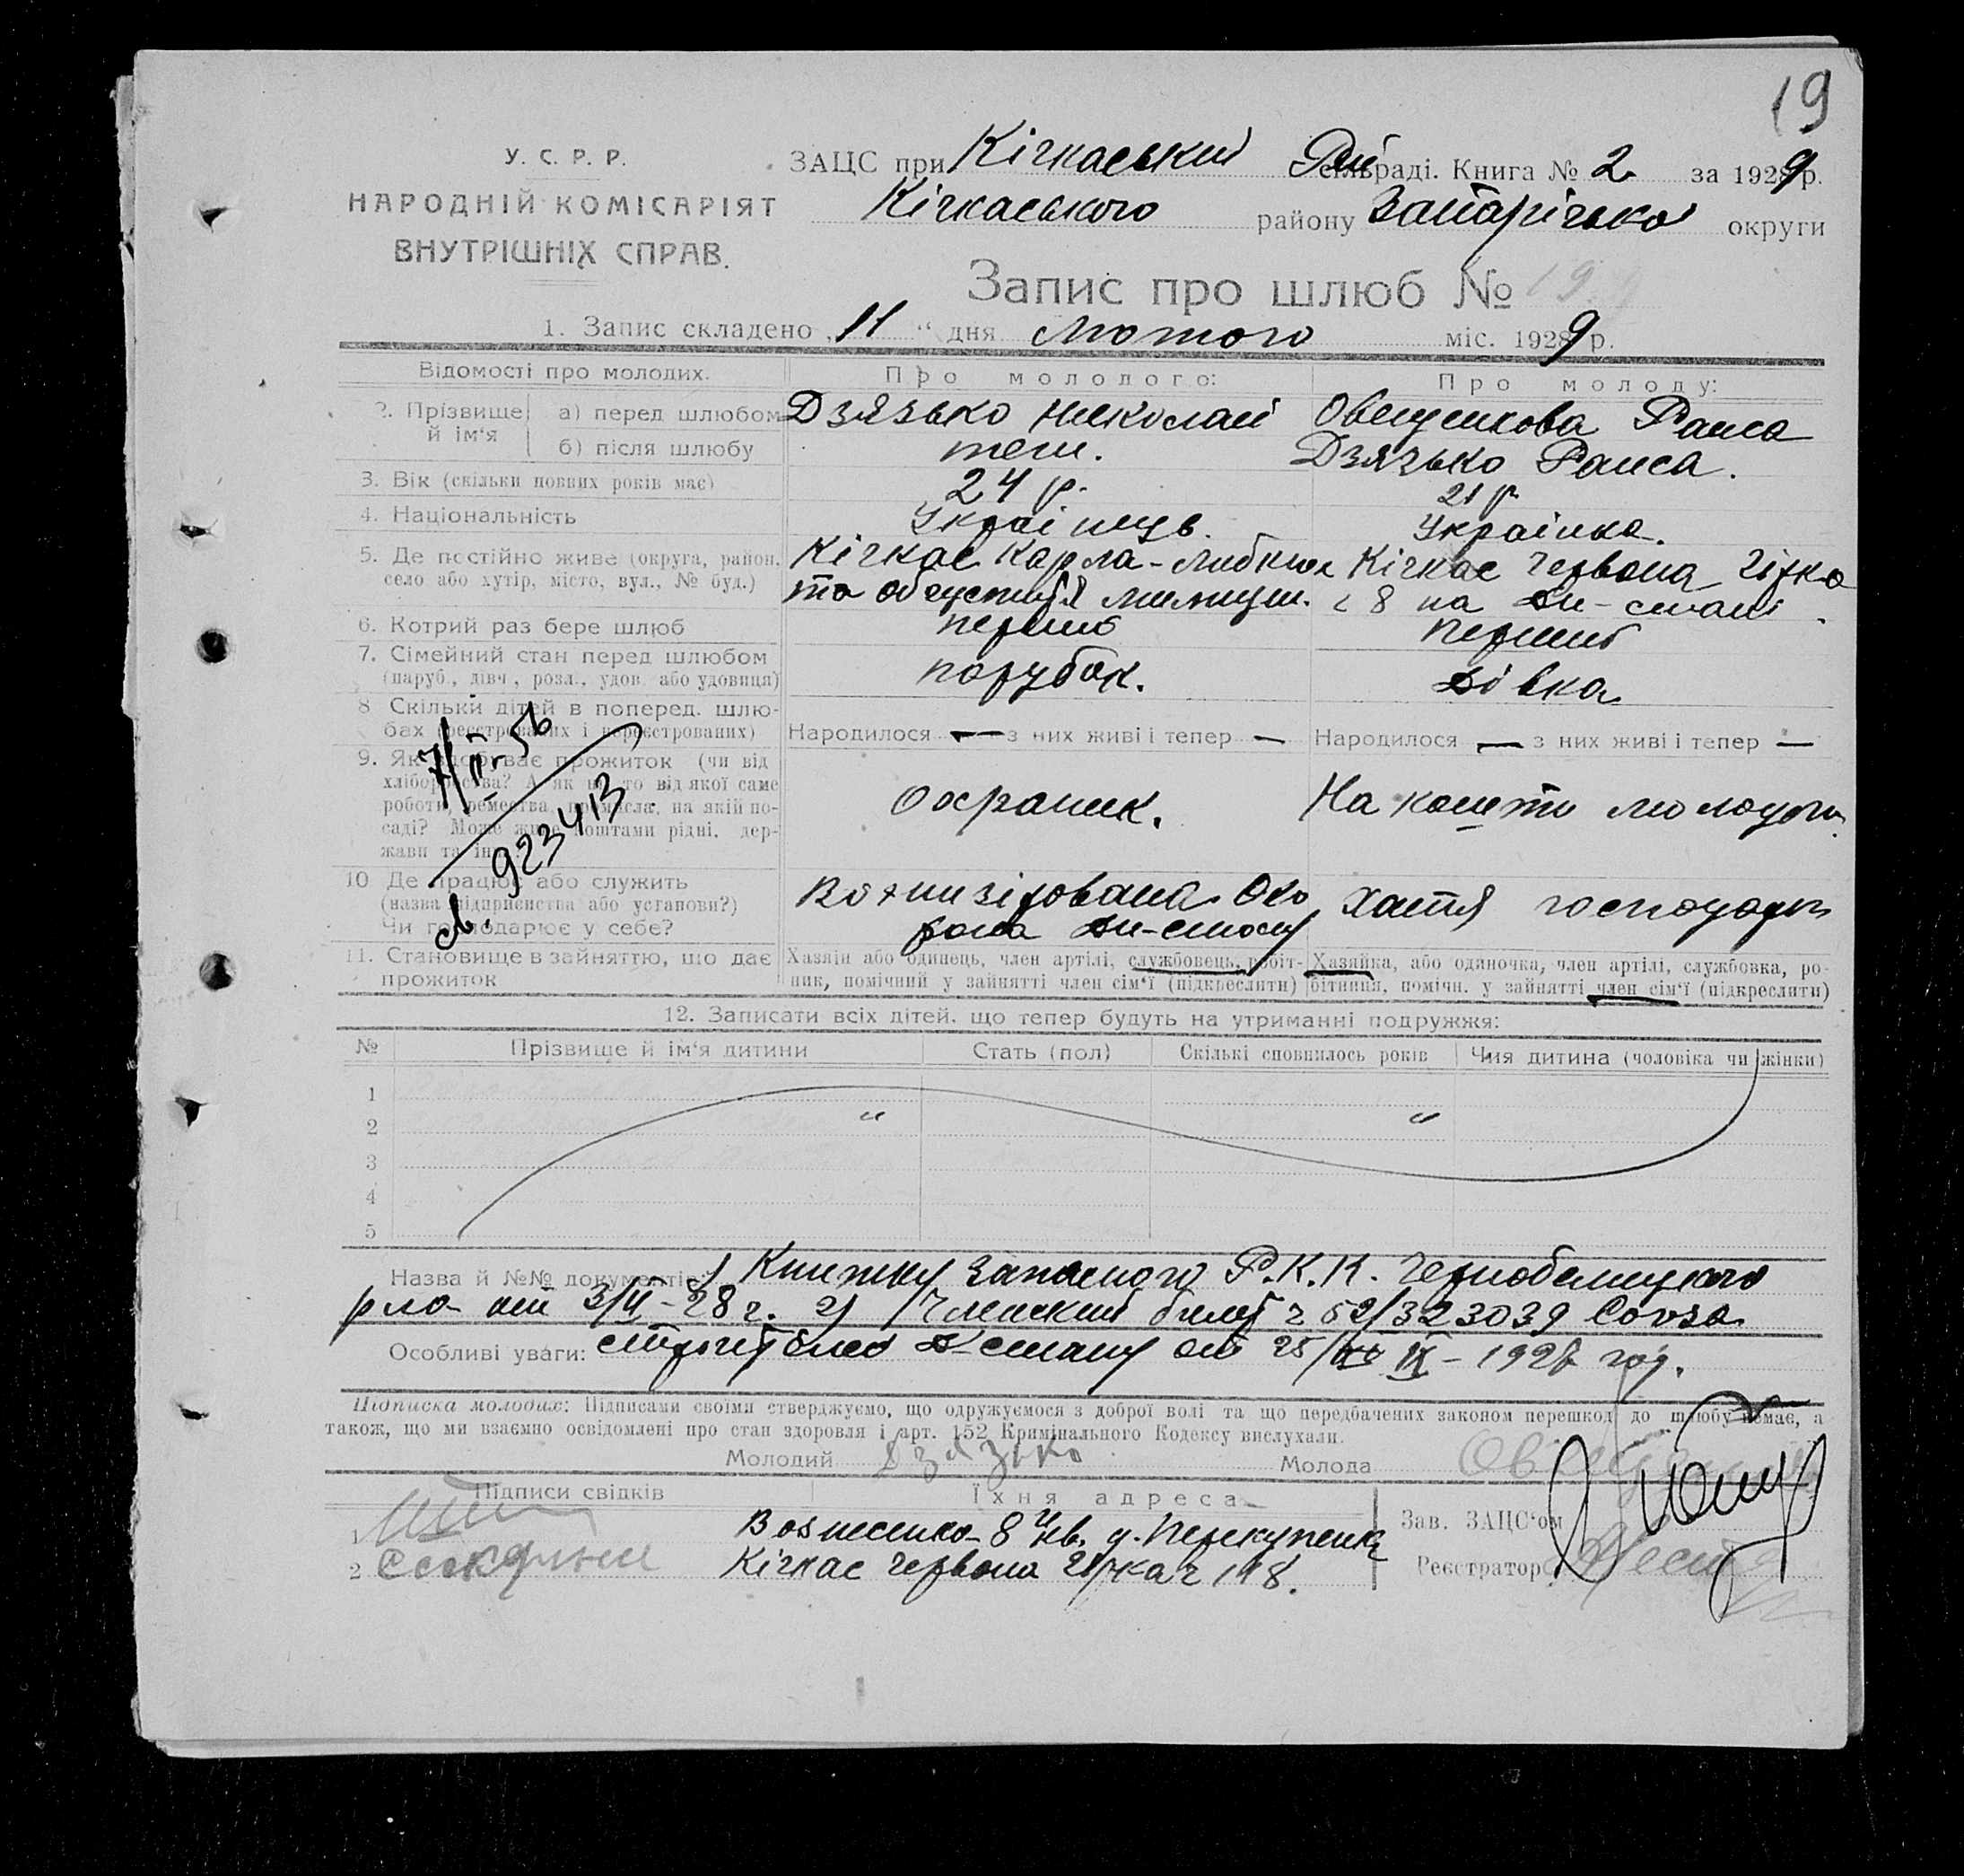 19
У. С. Р. Р.
НАРОДНІЙ КОМІСАРІЯТ
ВНУТРІШНІХ СПРАВ.
ЗАЦС при Кічкаський Рай сільраді. Книга № 2 за 1929 р.
Кічкаського району Запарізької округи
Запис про шлюб № 19
1. Запис складено „11“ дня Лютого міс. 1929 р.
Відомості про молодих. Про молодого: Про молоду:
2. Прізвище й ім‘я а) перед шлюбом Дзязько Николай Овещукова Раиса
б) після шлюбу теж. Дзязько Раиса.
3. Вік (скільки повних років має) 24 р. 21 р.
4. Національність Українець. Українка.
5. Де постійно живе (округа, район. Кічкас Карла-Либкнех Кічкас Червона Гірка
село або хутір, місто, вул., № буд.) та 8 на Дн-стані.
6. Котрий раз бере шлюб перший перший
7. Сімейний стан перед шлюбом
(паруб., дівч., розл., удов. або удовиця) парубок. дівка
8 Скільки дітей в поперед. шлю-
бах (реєстрованих і нереєстрованих) Народилося — з них живі і тепер — Народилося — з них живі і тепер —
9. Як здобуває прожиток (чи від
хліборобства? А як ні, то від якої саме
роботи, ремества, промисла, на якій по-
саді? Може живе коштами рідні, дер-
жави та інш. Оохраник. На кошти молодого.
7/II-56
923413
10 Де працює або служить
(назва підприємства або установи?)
Чи господарює у себе? Охо
рона Дн-стану Хатня господарк
11. Становище в зайняттю, що дає
прожиток
Хазяїн або одинець, член артілі, службовець, робіт-
ник, помічний у зайнятті член сім‘ї (підкреслити)
Хазяйка, або одиночка, член артілі, службовка, ро-
бітниця, помічн. у зайнятті член сім‘ї (підкреслити)
12. Записати всіх дітей, що тепер будуть на утриманні подружжя:
№ Прізвище й ім‘я дитини Стать (пол) Скількі сповнилось років Чия дитина (чоловіка чи жінки)
1
2 “ “
3
4
5
Назва й №№ документів: 1) Книжку Запасного Р.К.К.
28 г. 2) Членский билет 52/323039 Союза
Особливі уваги: от 25/IX-192 год.
Підписка молодих: Підписами своїми стверджуємо, що одружуємося з доброї волі та що передбачених законом перешкод до шлюбу немає, а
також, що ми взаємно освідомлені про стан здоровля і арт. 152 Кримінального Кодексу вислухали.
Молодий Дзязько Молода
Підписи свідків Їхня адреса
1 8 кв.
2 Кічкас Червона Гірка 118.
Зав. ЗАЦС‘ом
Реєстратор